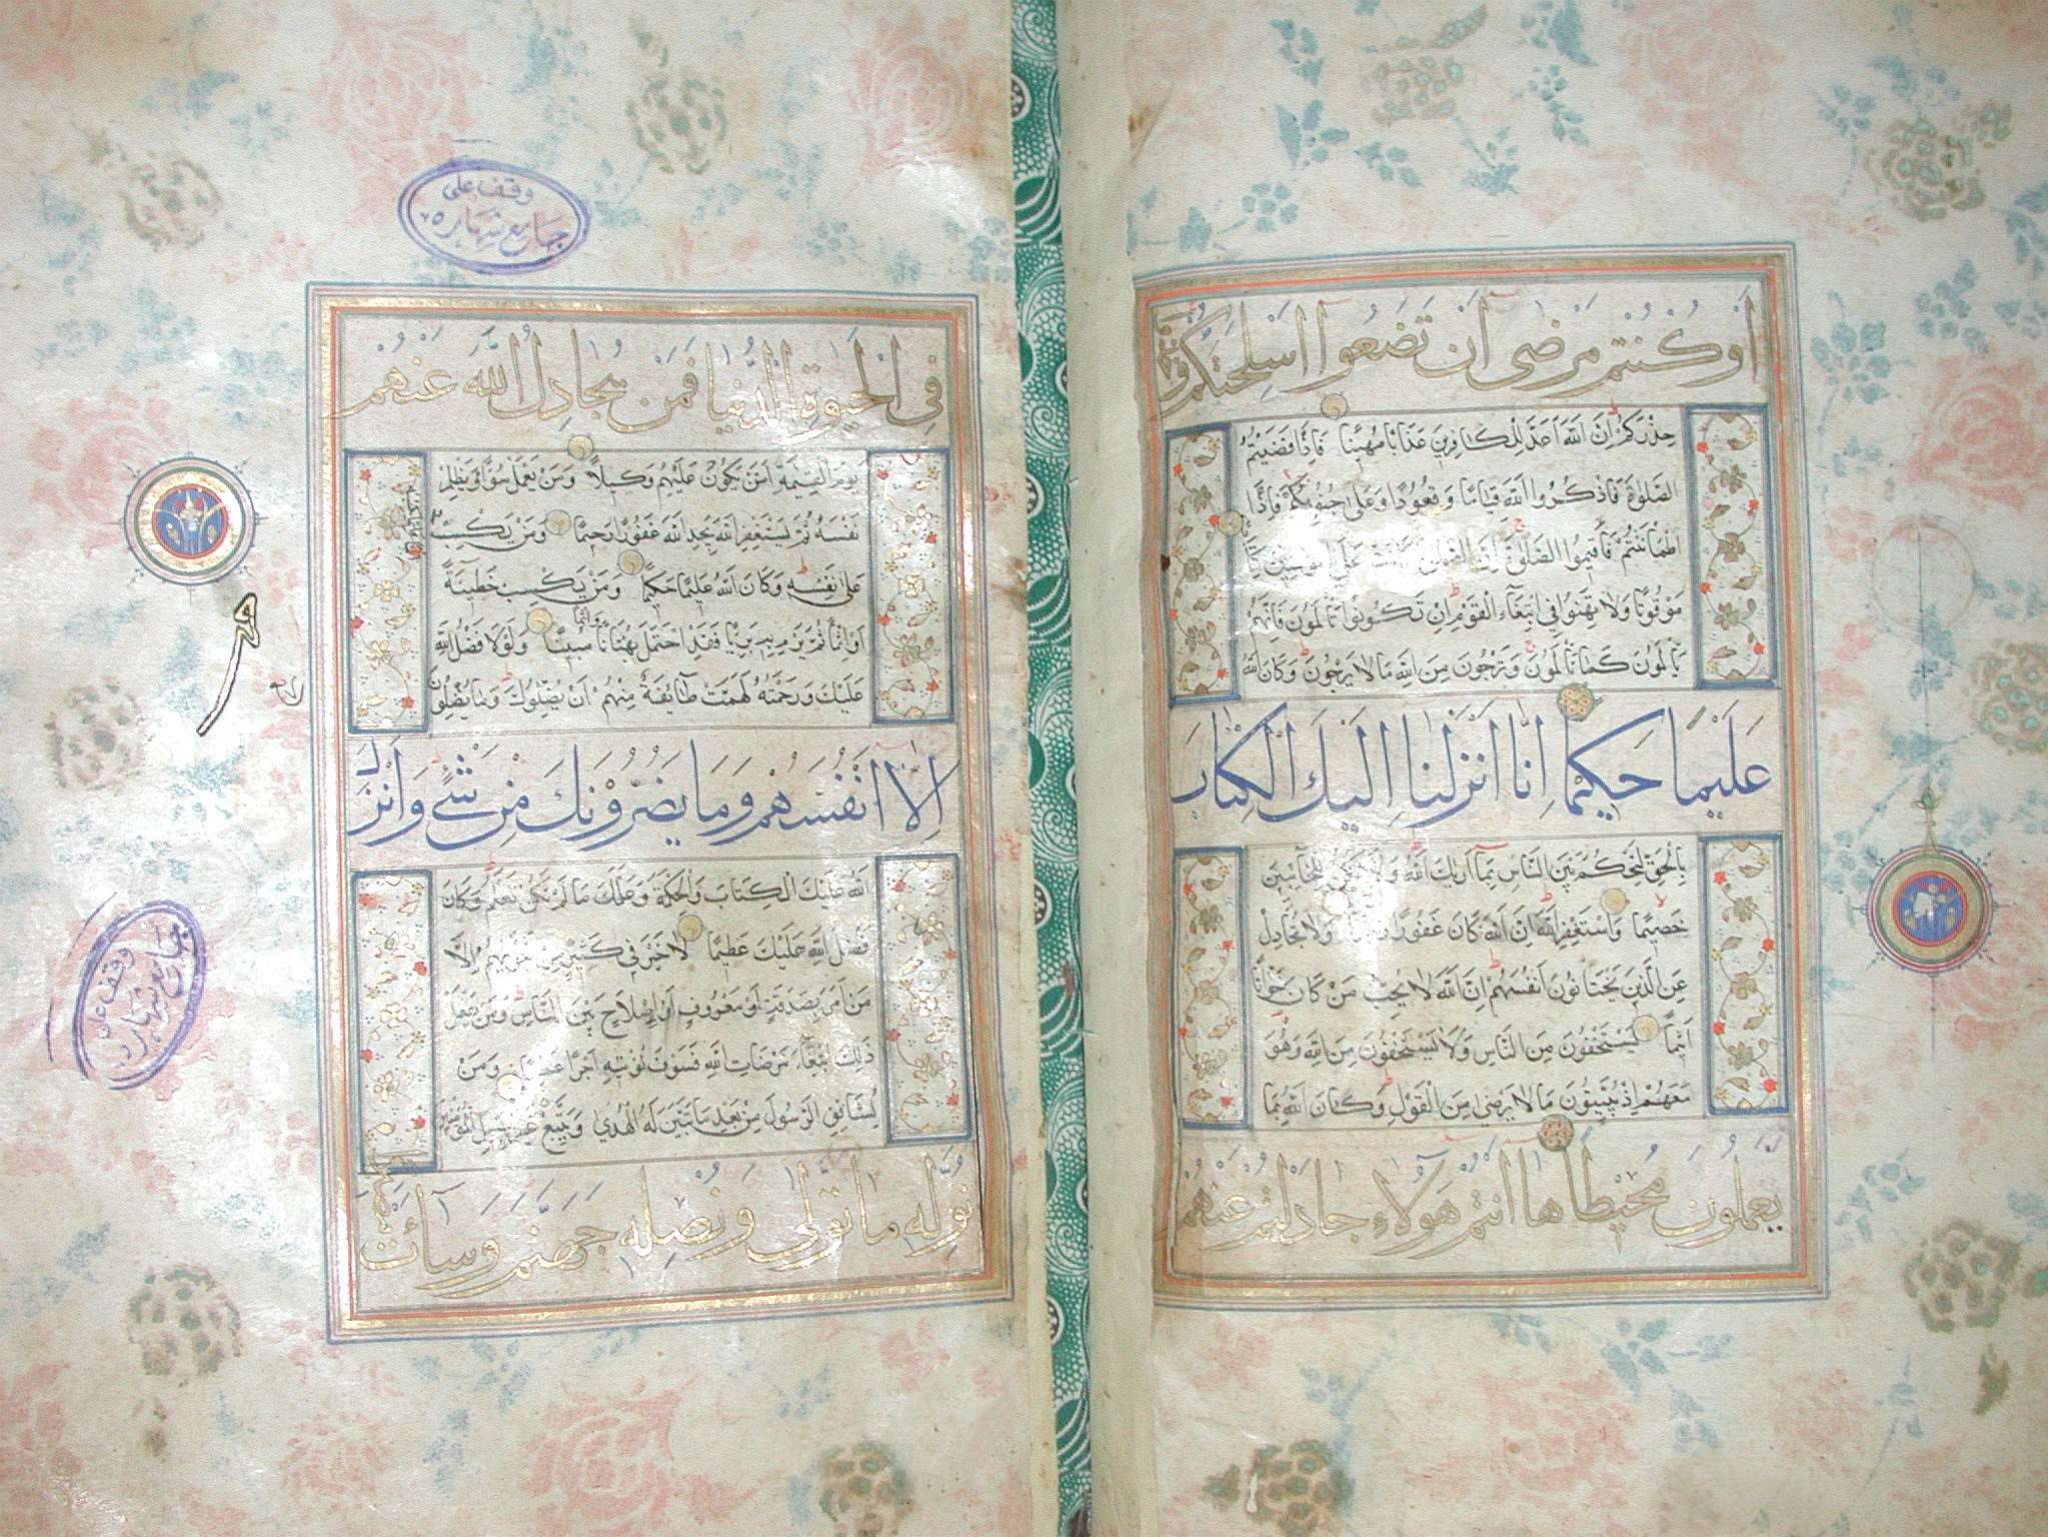 او كنتم مرضى ان تضعوا اسلحتكم وخذوا
حذركم ان الله اعد للكافرين عذابا مهينا فاذا قضيتم
الصلوة فاذكروا الله قياما وقعودا وعلى جنوبكم فاذا
اطماننتم فاقيموا الصلوة ان الصلوة كانت على المؤمنين كتابا
موقوتا ولا تهنوا في ابتغاء القوم ان تكونوا تالمون فانهم
يالمون كما تالمون وترجون من الله ما لا يرجون وكان الله
عليما حكيما انا انزلنا اليك الكتاب
بالحق لتحكم بين الناس بما اريك الله ولا تكن للخائنين
خصيما واستغفر الله ان الله كان غفورا رحيما ولا تجادل
عن الذين يختانون انفسهم ان الله لا يحب من كان خوانا
اثيما يستخفون من الناس ولا يستخفون من الله وهو
معهم اذ يبيتون ما لا يرضى من القول وكان الله بما
يعملون محيطا ها انتم هولاء جادلتم عنهم
وقف على
جامع شهاره
في الحيوة الدنيا فمن يجادل الله عنهم
يوم القيمة امن يكون عليهم وكيلا ومن يعمل سوءا او يظلم
نفسه ثم يستغفر الله يجد الله غفورا رحيما ومن يكسب
على نفسه وكان الله عليما حكيما ومن يكسب خطيئة
او اثما ثم يرم به بريئا فقد احتمل بهتانا واثما مبينا ولولا فضل الله
عليك ورحمته لهمت طائفة منهم ان يضلوك وما يضلون
الا انفسهم وما يضرونك من شيء وانزل
الله عليك الكتاب والحكمة وعلمك ما لم تكن تعلم وكان
فضل الله عليك عظيما لا خير في كثير من نجويهم الا
من امر بصدقة او معروف او اصلاح بين الناس ومن يفعل
ذلك ابتغاء مرضات الله فسوف نؤتيه اجرا عظيما ومن
يشاقق الرسول من بعد ما تبين له الهدى ويتبع غير سبيل المؤمنين
نوله ما تولى ونصله جهنم وساءت
وقف على
جامع شهاره